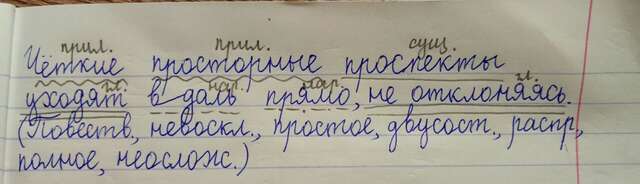 прил. прил. сущ.
Чёткие просторные проспекты
гл. нар. нар. гл.
уходят в даль прямо, не отклоняясь.
(Повеств., невоскл., простое, двусост., распр.,
полное, неослож.)